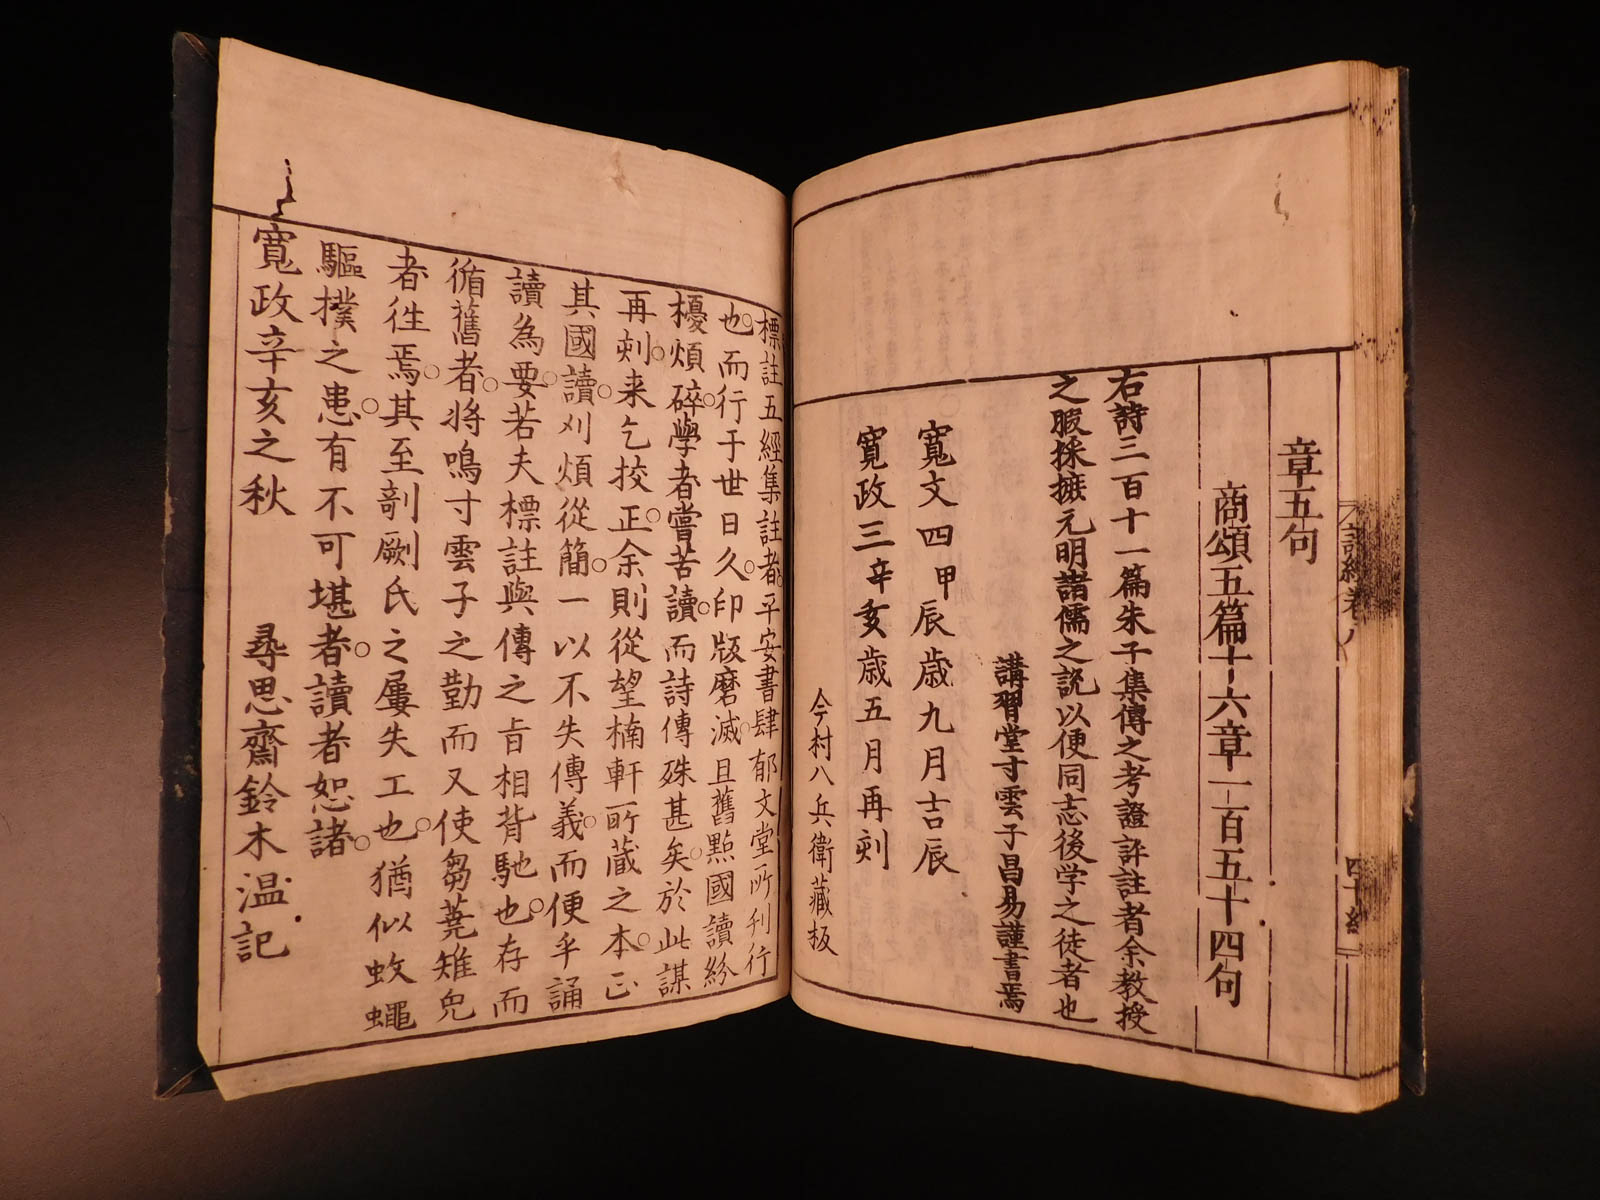 章五句
商頌五篇十六章一百五十四句
右詩三百十一篇朱子集傳之考證註註者余教授
之暇採摭元明諸儒之説以便同志後学之徒者也
講習堂寸雲子昌易謹書焉
寛文四甲辰歳九月吉辰
寛政三辛亥歳五月再刻
今村八兵衛藏板
標註五經集註者平安書肆郁文堂所刋行
也而行于世日久印版磨滅且舊點國讀紛
擾煩碎學者嘗苦讀而詩傳殊甚矣於此謀
再刻来乞挍正余則從望楠軒所蔵之本正
其國讀刈煩從簡一以不失傳義而便乎誦
讀為要若夫標註與傳之旨相背馳也存而
循舊者將鳴寸雲子之勤而又使芻蕘雉兔
者徃焉其至剞劂氏之屢失工也猶似蚊蠅
驅撲之患有不可堪者讀者恕諸
寛政辛亥之秋 尋思齋鈴木温記